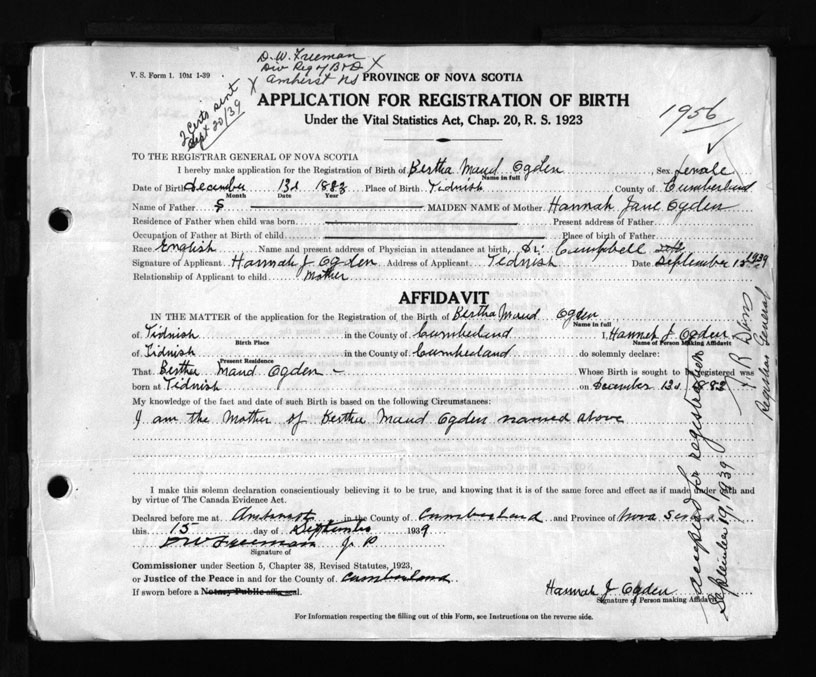 D. W. Freeman
Div Reg of B & D
Amherst NS
V. S. Form 1. 10M 1-39
2 Certs sent
Sept 20/39
PROVINCE OF NOVA SCOTIA
APPLICATION FOR REGISTRATION OF BIRTH
Under the Vital Statistics Act, Chap. 20, R. S. 1923
1956
TO THE REGISTRAR GENERAL OF NOVA SCOTIA
I hereby make application for the Registration of Birth of Bertha Maud Ogden Sex Female
Name in full
Date of Birth December 13d 1882 Place of Birth Tidnish County of Cumberland
Month Date Year
Name of Father MAIDEN NAME of Mother Hannah Jane Ogden
Residence of Father when child was born Present address of Father
Occupation of Father at Birth of child Place of birth of Father
Race English Name and present address of Physician in attendance at birth, Dr. Campbell
Signature of Applicant Hannah J Ogden Address of Applicant Tidnish Date September 15 1939
Relationship of Applicant to child Mother
AFFIDAVIT
IN THE MATTER of the application for the Registration of the Birth of Bertha Maud Ogden
Name in full
of Tidnish in the County of Cumberland I, Hannah J Ogden
Birth Place Name of Person Making Affidavit
of Tidnish in the County of Cumberland do solemnly declare:
Present Residence
That Bertha Maud Ogden Whose Birth is sought to be registered was
born at Tidnish on December 13d 1882
My knowledge of the fact and date of such Birth is based on the following Circumstances:
I am the Mother of Bertha Maud Ogden named above
I make this solemn declaration conscientiously believing it to be true, and knowing that it is of the same force and effect as if made under oath and
by virtue of The Canada Evidence Act.
Declared before me at Amherst in the County of Cumberland and Province of Nova Scotia
this 15 day of September 1939
D W Freeman J. P
Signature of
Commissioner under Section 5, Chapter 38, Revised Statutes, 1923,
or Justice of the Peace in and for the County of Cumberland
If sworn before a Notary Public affix seal.
Hannah J Ogden
Signature of Person making Affidavit
For Information respecting the filling out of this Form, see Instructions on the reverse side.
accepted for registration
September 19, 1939
Registrar General